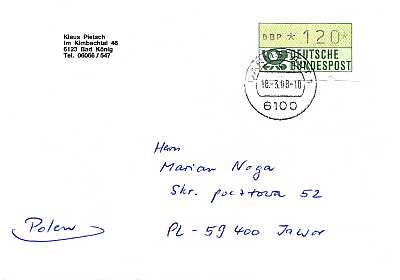 Klaus Pietsch
Im Kimbachtal 46
6123 Bad König
Tel. 06066 / 547
DBP * 120*
DEUTSCHE
BUNDESPOST
-3.88-10
6100
Herrn
Marian Noga
Skr. pocztowa 52
PL - 59 400 Jawor
Polen